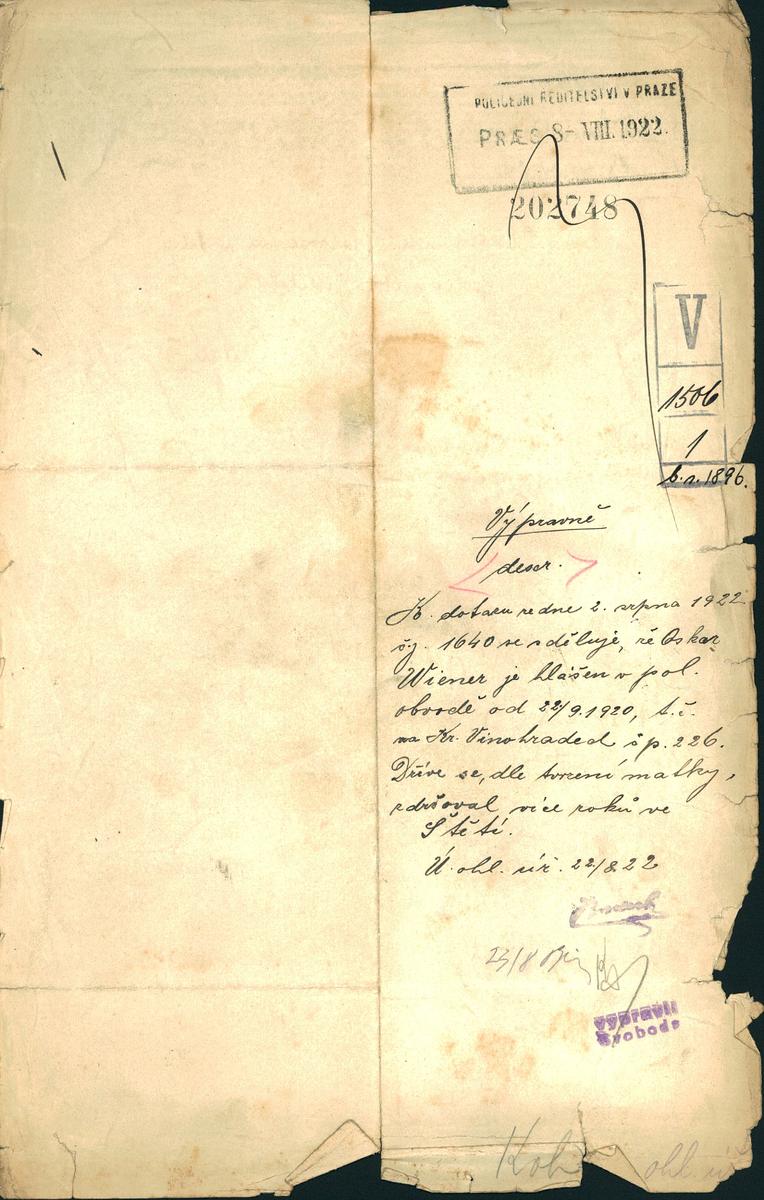 POLICEJNÍ ŘEDITELSTVÍ V PRAZE
PRÆS 8- VIII. 1922.
202748
V
1506
1
b.r. 1896.
Výpravně
descr.
K dotazu ze dne 2. srpna 1922
čj. 1640 se sděluje, že Oskar
Wiener je hlášen v pol.
obvodě od 22/9.1920, t.č.
na Kr. Vinohradech čp. 226.
Dříve se, dle tvrzení matky,
zdržoval více roků ve
Štětí.
Ú. ohl. úř. 22/8 22
23/8
Vypravil
Svoboda
Koh
ohl. úř